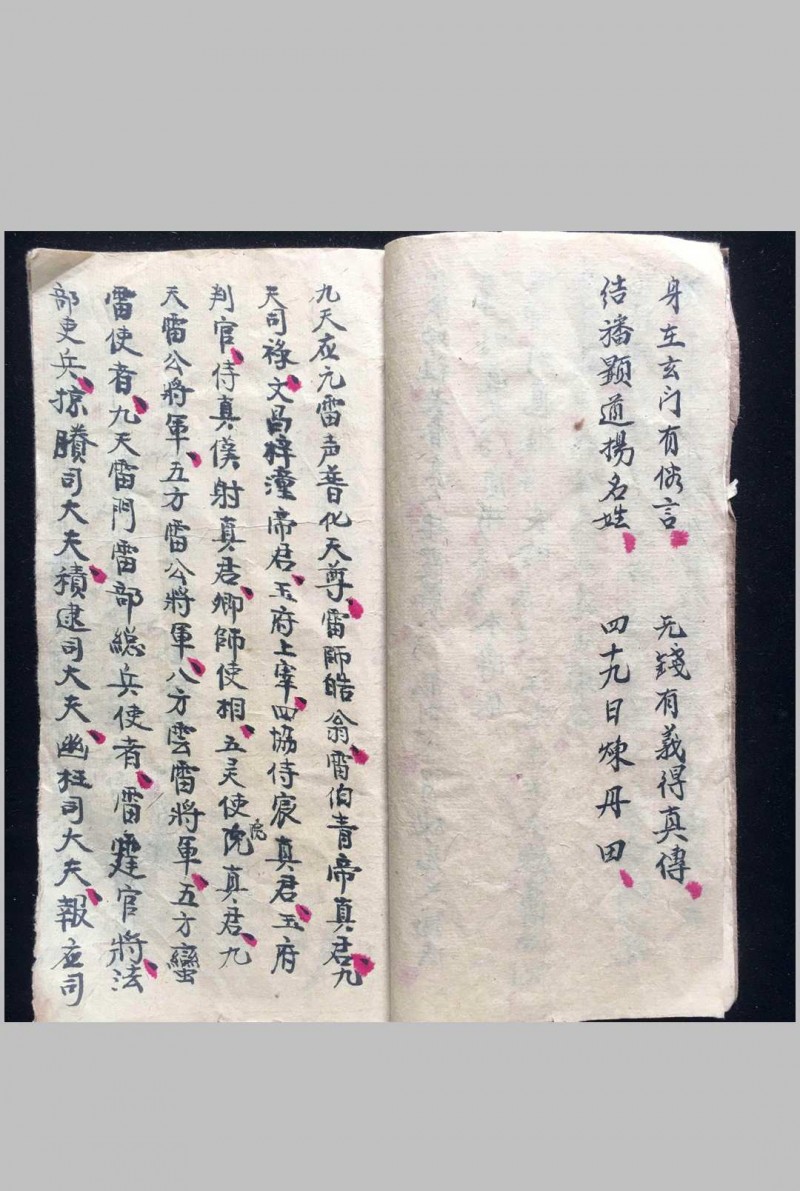 身在玄门有俗言 无錢有義得真傳
结播顕道揚名姓 四十九日煉丹田
九天应元雷声普化天尊雷師皓翁雷伯青帝真君九
天司祿文昌梓潼帝君玉府上宰四協侍宸真君玉府
判官侍真僕射真君卿師使相五灵使院真君九
院
天雷公將軍五方雷公將軍八方雲雷將軍五方蠻
雷使者九天雷門雷部總兵使者雷霆官將法
部吏兵掠賸司大夫積逮司大夫幽枉司大夫報应司